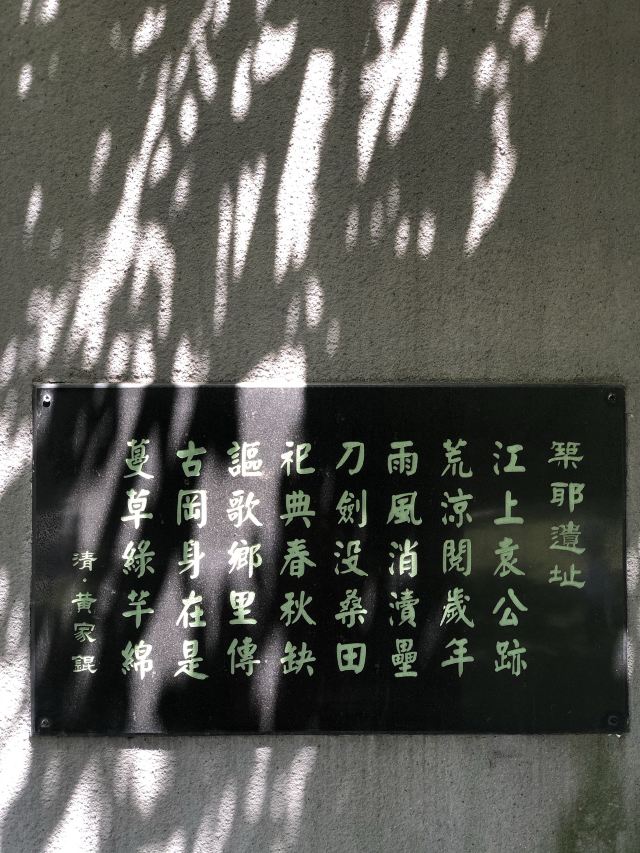 築耶遺址
江上袁公跡
荒涼閱歲年
雨風消瀆壘
刀劍没桑田
祀典春秋缺
謳歌鄉里傳
古岡身在是
蔓草綠芊綿
清·黄家錕